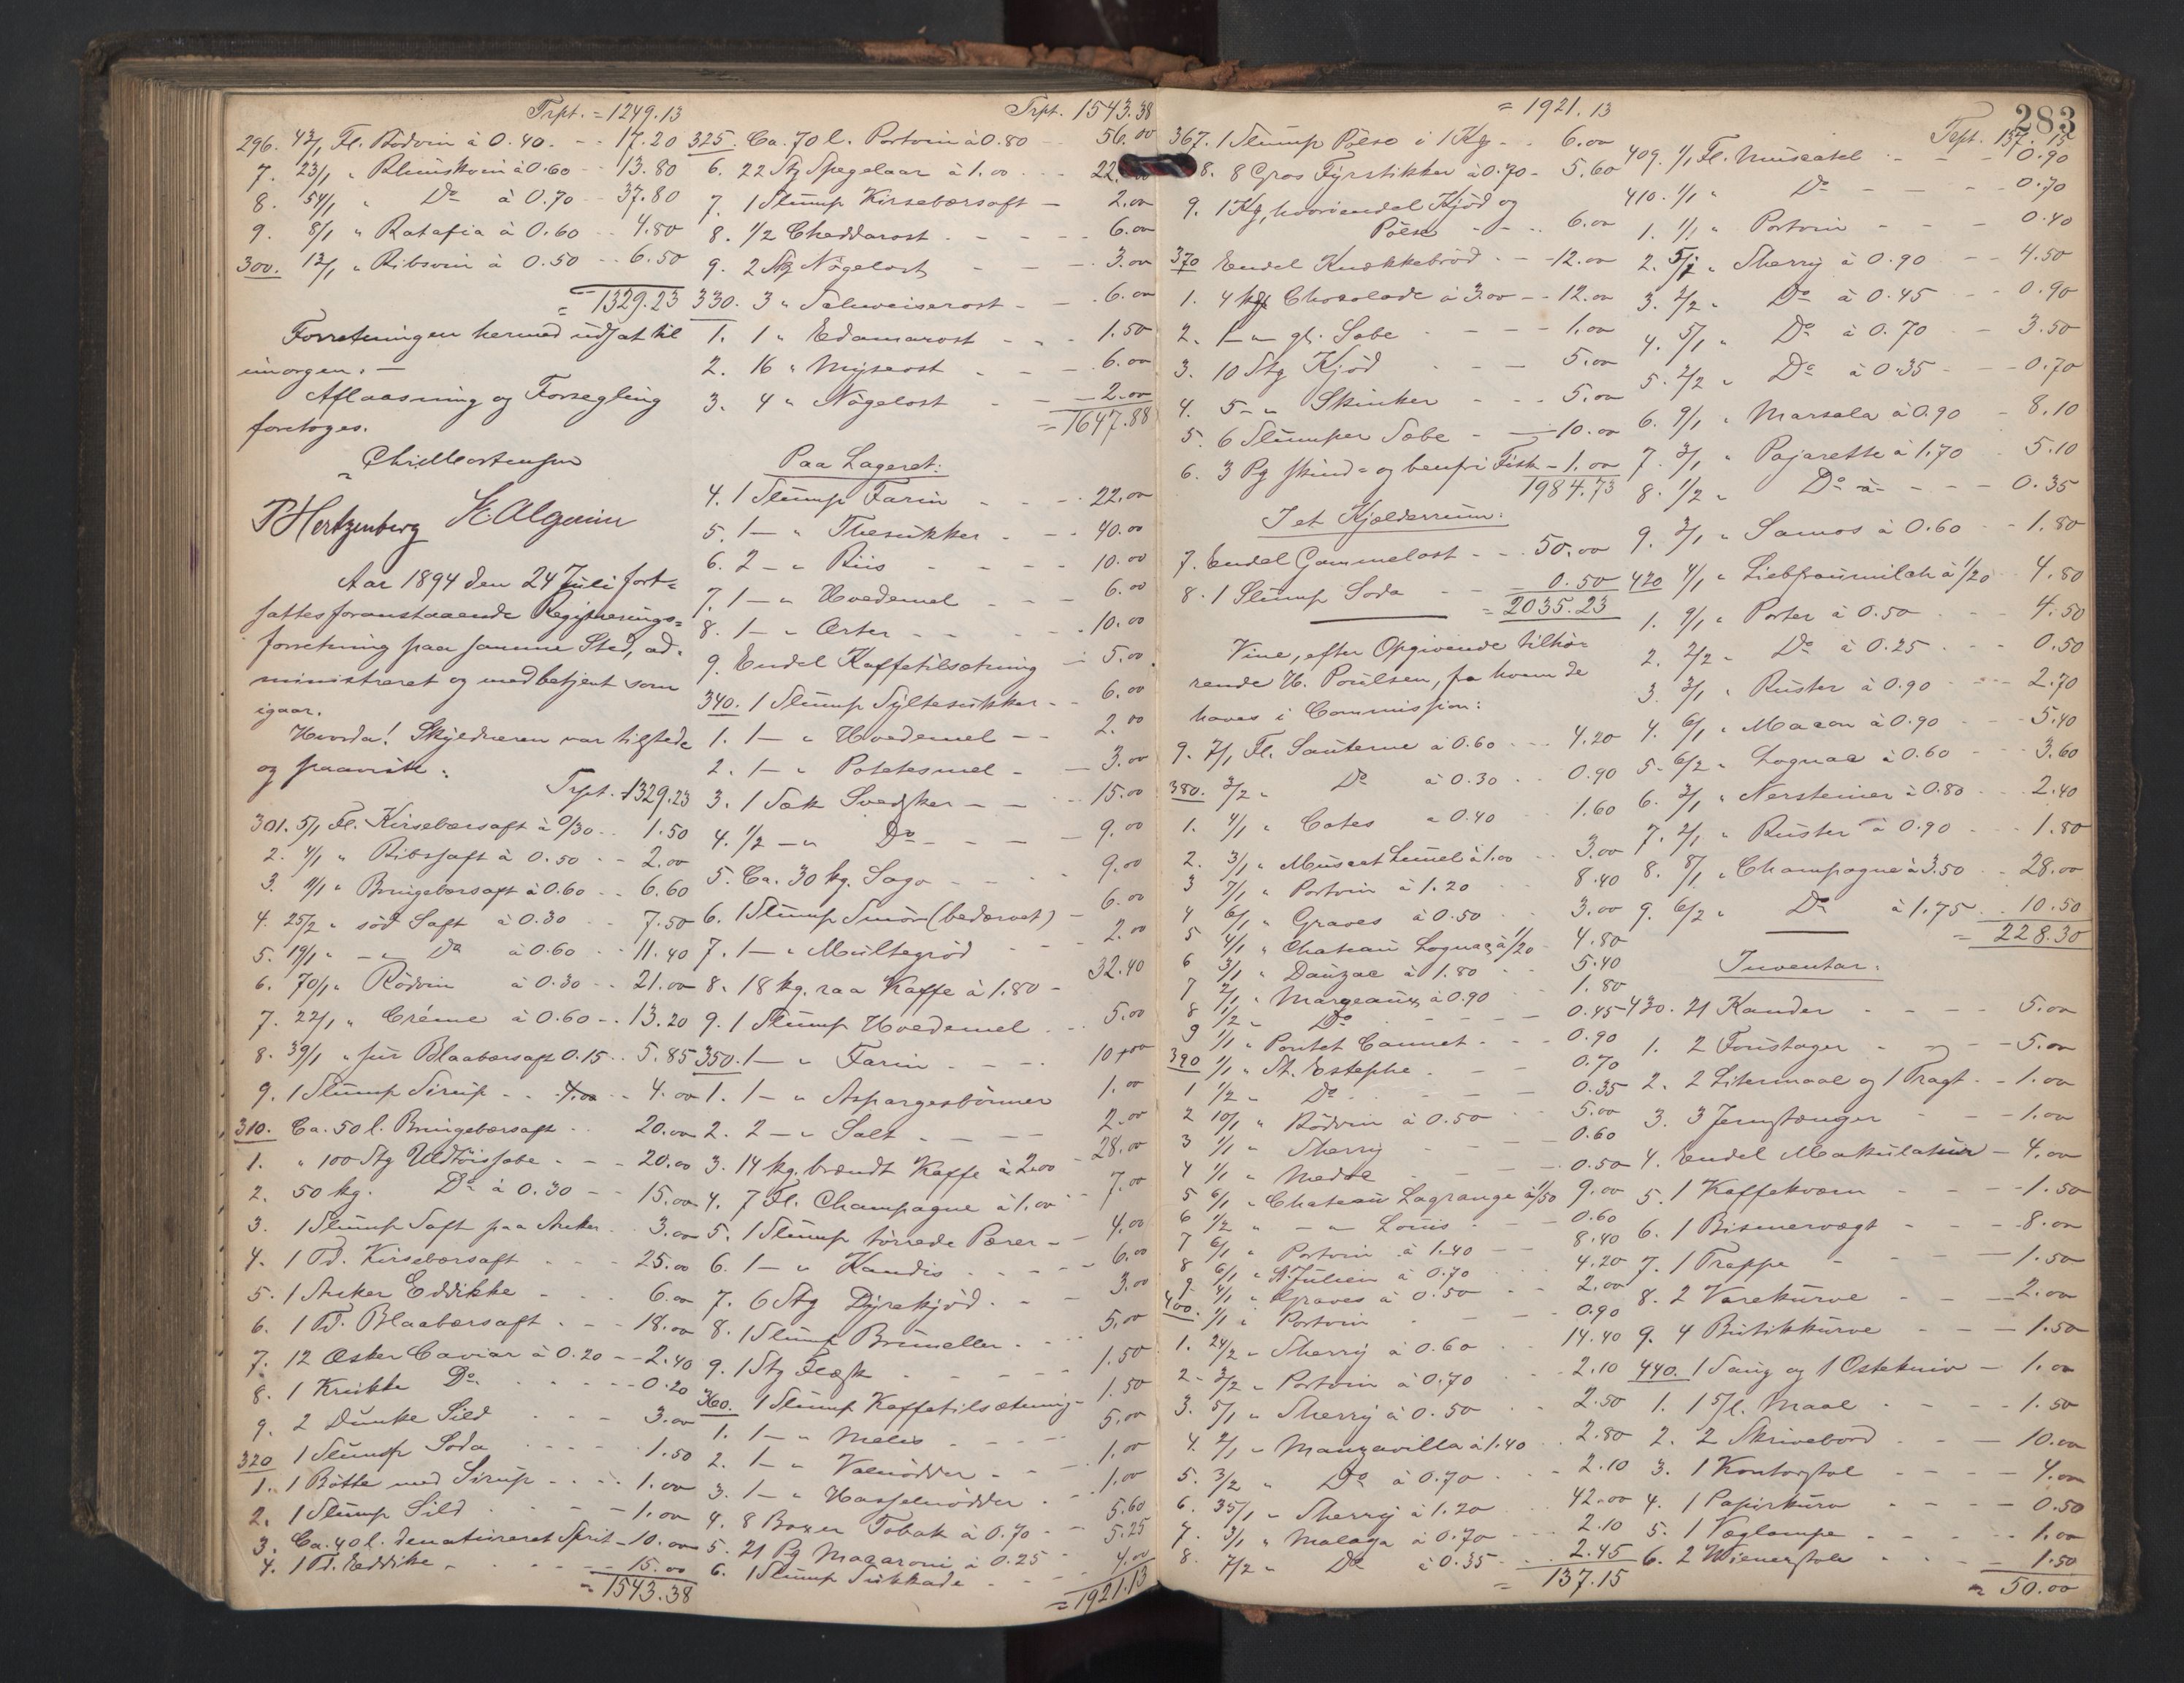 Trpt. = 1249.13
296. 43/1 Fl. Rödvin à 0.40. - - 17.20
7. 23/1 " Rhinskvin à 0.60 - - 13.80
8. 54/1 " Do à 0.70 - - 37.80
9. 8/1 " Ratafia à 0.60 - - 4.80
300. 13/1 " Ribsvin à 0.50 - - 6.50
= 1329.23
Forretningen hermed udsat til
imorgen. —
Aflaasning og Forsegling
foretoges.
Chr. Mortensen
P Hertzenberg K. Algarim
Aar 1894 den 24 Juli fort=
sattes foranstaaende Registrerings=
forretning paa samme Sted, ad=
ministreret og medbetjent som
igaar.
Hvorda! Skyldneren var tilstede
og paaviste:
Trpt. 1329.23
301. 5/1 Fl. Kirsebærsaft à 0/30 - - 1.50
2. 4/1 " Ribssaft à 0.50 - - 2.00
3. 11/1 " Bringebærsaft à 0.60 - - 6.60
4. 25/2 " söd Saft à 0.30 - - 7.50
5. 19/1 " - " Do à 0.60 - - 11.40
6. 70/1 " Rödvin à 0.30 - - 21.00
7. 22/1 " Créme à 0.60 - - 13.20
8. 39/1 " sur Blaabærsaft 0.15 - - 5.85
9. 1 Slump Sirup - - 4.00 - - 4.00
310. Ca. 50 l. Bringebærsaft - - 20.00
1. " 100 Stg Uldtöissæbe - - - 20.00
2. 50 kg. Do à 0.30 - - 15.00
3. 1 Slump Saft paa Anker - - 3.00
4. 1 Td. Kirsebærsaft - - - 25.00
5. 1 Anker Eddikke - - - 6.00
6. 1 Td. Blaabærsaft - - - 18.00
7. 12 Æsker Caviar à 0.20 - - 2.40
8. 1 Krukke Do. - - - - 0.20
9. 2 Dunke Sild - - - 3.00
320 1 Slump Soda - - - - 1.50
1. 1 Bötte med Sirup - - - 1.00
2. 1 Slump Sild - - - - 1.00
3. Ca. 40 l. denatureret Sprit - 10.00
4. 1 Td. Eddike - - - - 15.00
= 1543.38
Trpt. 1543.38
325. Ca. 70 l. Portvin à 0.80 - - 56.00
6. 22 Stg Spegelaar à 1.00 - - - 22
7. 1 Slump Kirsebærsaft — 2.00
8. 1/2 Cheddarost - - - - 6.00
9. 2 Stg Nögelost - - - 3.00
330. 3 " Schweizerost - - - 6.00
1. 1 " Edamerost - - - 1.50
2. 16 " Myseost - - - 6.00
3. 4 " Nögelost - - - 2.00
= 1647.88
Paa Lageret:
4. 1 Slump Farin - - - - 22.00
5. 1 — " Thesukker - - - 40.00
6. 2 — " Riis - - - - 10.00
7. 1 — " Hvedemel - - - 6.00
8. 1 — " Ærter - - - - - 10.00
9. Endel Kaffetilsætning — 5.00
340. 1 Slump Syltesukker - - 6.00
1. 1 — " Hvedemel - - 2.00
2. 1 — " Potetesmel - - 3.00
3. 1 Sæk Svedsker - - - - 15.00
4. 1/2 — " Do - - - - 9.00
5. Ca. 30 kg. Sago - - - - 9.00
6. 1 Slump Smör (bedærvet) - 6.00
7. 1 — " Multegröd - - - 2.00
8. 18 kg. raa Kaffe à 1.80 - 32.40
9. 1 Slump Hvedemel - - - 5.00
350. 1 — " Farin - - - - 10.00
1. 1 — " Aspargesbönner 1.00
2. 2 — " Salt - - - - 2.00
3. 14 kg. brændt Kaffe à 2.00 - 28.00
4. 7 Fl. Champagne à 1.00 - - 7.00
5. 1 Slump törrede Pærer - - 4.00
6. 1 — " Kandis - - - - 6.00
7. 6 Stg Dyrekjöd - - - 3.00
8. 1 Slump Bruneller - - - 5.00
9. 1 Stg Flæsk - - - - 1.50
360. 1 Slump Kaffetilsætning - 1.50
1. 1 — " Melis - - - - 5.00
2. 1 — " Valnödder - - - 1.00
3. 1 — " Hasselnödder - - - 1.00
4. 8 Boxer Tobak à 0.70 - - 5.60
5. 21 Pg Macaroni à 0.25 - 5.25
6. 1 Slump Sukkade - - - - 4.00
= 1921.13
= 1921.13
367. 1 Slump Pölse i 1 Kg - - 6.00
8. 8 Gros Fyrstikker à 0.70 - 5.60
9. 1 Kg, hvori endel Kjöd og
Pölse - - - 6.00
370 Endel Knækkebröd - - 12.00
1. 4 kg Chocolade à 3.00 - - 12.00
2. 1 — " gl. Sæbe - - - - 1.00
3. 10 Stg Kjöd - - - 5.00
4. 5 - " Skinker - - - 5.00
5. 6 Slumper Sæbe - - 10.00
6. 3 Pg skind- og benfri Fisk - 1.00
1984.73
I et Kjælderrum:
7. Endel Gammelost - - - 50.00
8. 1 Slump Soda - - - 0.50
= 2035.23
Vine, efter Opgivende tilhö-
rende H. Poulsen, fra hvem de
haves i Commission:
9. 7/1 Fl. Sauterne à 0.60 - - - 4.20
380. 3/2 " Do à 0.30 - - 0.90
1. 4/1 " Cotes à 0.40 1.60
2. 3/1 " Muscat Lunel à 1.00 - - 3.00
3 7/1 " Portvin à 1.20 8.40
4 6/1 " Graves à 0.50 - - 3.00
5 4/1 " Chateau Cognac à 1/20 - 4.80
6 3/1 " Dauzac à 1.80 - - 5.40
7 2/1 " Margeaux à 0.90 - 1.80
8 1/2 " Do - - - - - 0.45
9 1/1 " Pontet Cannet - - - 0.90
390 1/1 " St. Estephe - - - 0.70
1 1/2 " Do - - - - - 0.35
2 10/1 " Rödvin à 0.50 - - 5.00
3 1/1 " Sherry - - - 0.60
4 1/1 " Medoc - - - 0.50
5 6/1 " Chateau Lagrange à 1/50 9.00
6 1/2 " - " Louis - - - 0.60
7 6/1 " Portvin à 1.40 - - 8.40
8 6/1 " St. Julien à 0.70 - - 4.20
9 4/1 " Graves à 0.50 - - 2.00
400. 1/1 " Portvin - - - 0.90
1. 24/2 " Sherry à 0.60 - 14.40
2. 3/2 " Portvin à 0.70 - - 2.10
3. 5/1 " Sherry à 0.50 - - 2.50
4. 2/1 " Manzavilla à 1.40 - - 2.80
5. 3/2 " Do à 0.70 - - - 2.10
6. 35/1 " Sherry à 1.20 - - 42.00
7. 3/1 " Malaga à 0.70 - - - 2.10
8. 7/2 " Do à 0.35 - - - 2.45
= 137.15
283
Trpt. 137.15
409. 1/1 Fl. Muscatel - - - 0.90
410. 1/1 " Do - - - - 0.70
1. 1/1 " Portvin - - - - 0.40
2. 5/1 " Sherry à 0.90 - - 4.50
3. 2/2 " Do à 0.45 - - 0.90
4. 5/1 " Do à 0.70 - - 3.50
5. 2/2 " Do à 0.35 - - - 0.70
6. 9/1 " Marsala à 0.90 - 8.10
7. 3/1 " Pajarette à 1.70 - 5.10
8. 1/2 " Do à - - - 0.35
9. 3/1 " Samos à 0.60 - - 1.80
420 4/1 " Liebfraumilch à 1/20 - - 4.80
1. 9/1 " Porter à 0.50 - - - 4.50
2. 2/2 " Do à 0.25 - - - 0.50
3. 3/1 " Ruster à 0.90 - - - 2.70
4. 6/1 " Macon à 0.90 - - - 5.40
5. 6/2 " Cognac à 0.60 - - - 3.60
6. 3/1 " Nersteiner à 0.80 - - - 2.40
7. 2/1 " Ruster à 0.90 - - - 1.80
8. 8/1 " Champagne à 3.50 - - 28.00
9. 6/2 " Do à 1.75 - - 10.50
= 228.30
Inventar:
430. 21 Kander - - - - 5.00
1. 2 Foustager - - - - 5.00
2. 2 Litermaal og 1 Tragt - - 1.00
3. 3 Jernstænger - - - 1.00
4. Endel Makulatur - 4.00
5. 1 Kaffekværn - - - 1.50
6. 1 Bismervægt - - - - 8.00
7. 1 Trappe - - - - 1.50
8. 2 Varekurve - - - 2.00
9. 4 Butikkurve - - - 1.50
440. 1 Saug og 1 Ostekniv - 1.00
1. 1 5/l. Maal - - - - 1.50
2. 2 Skrivebord - - - 10.00
3. 1 Kontorstol - - - - 4.00
4. 1 Papirkurv - - - - 0.50
5. 1 Væglampe - - - - 1.00
6. 2 Wienerstole - - - - 1.50
= 50.00